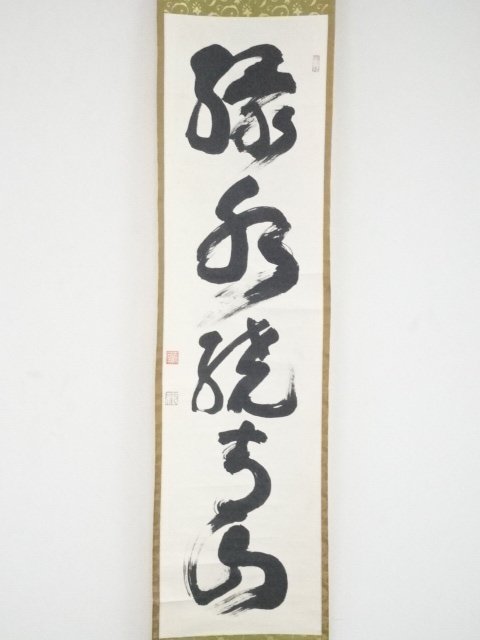 緑水繞青山